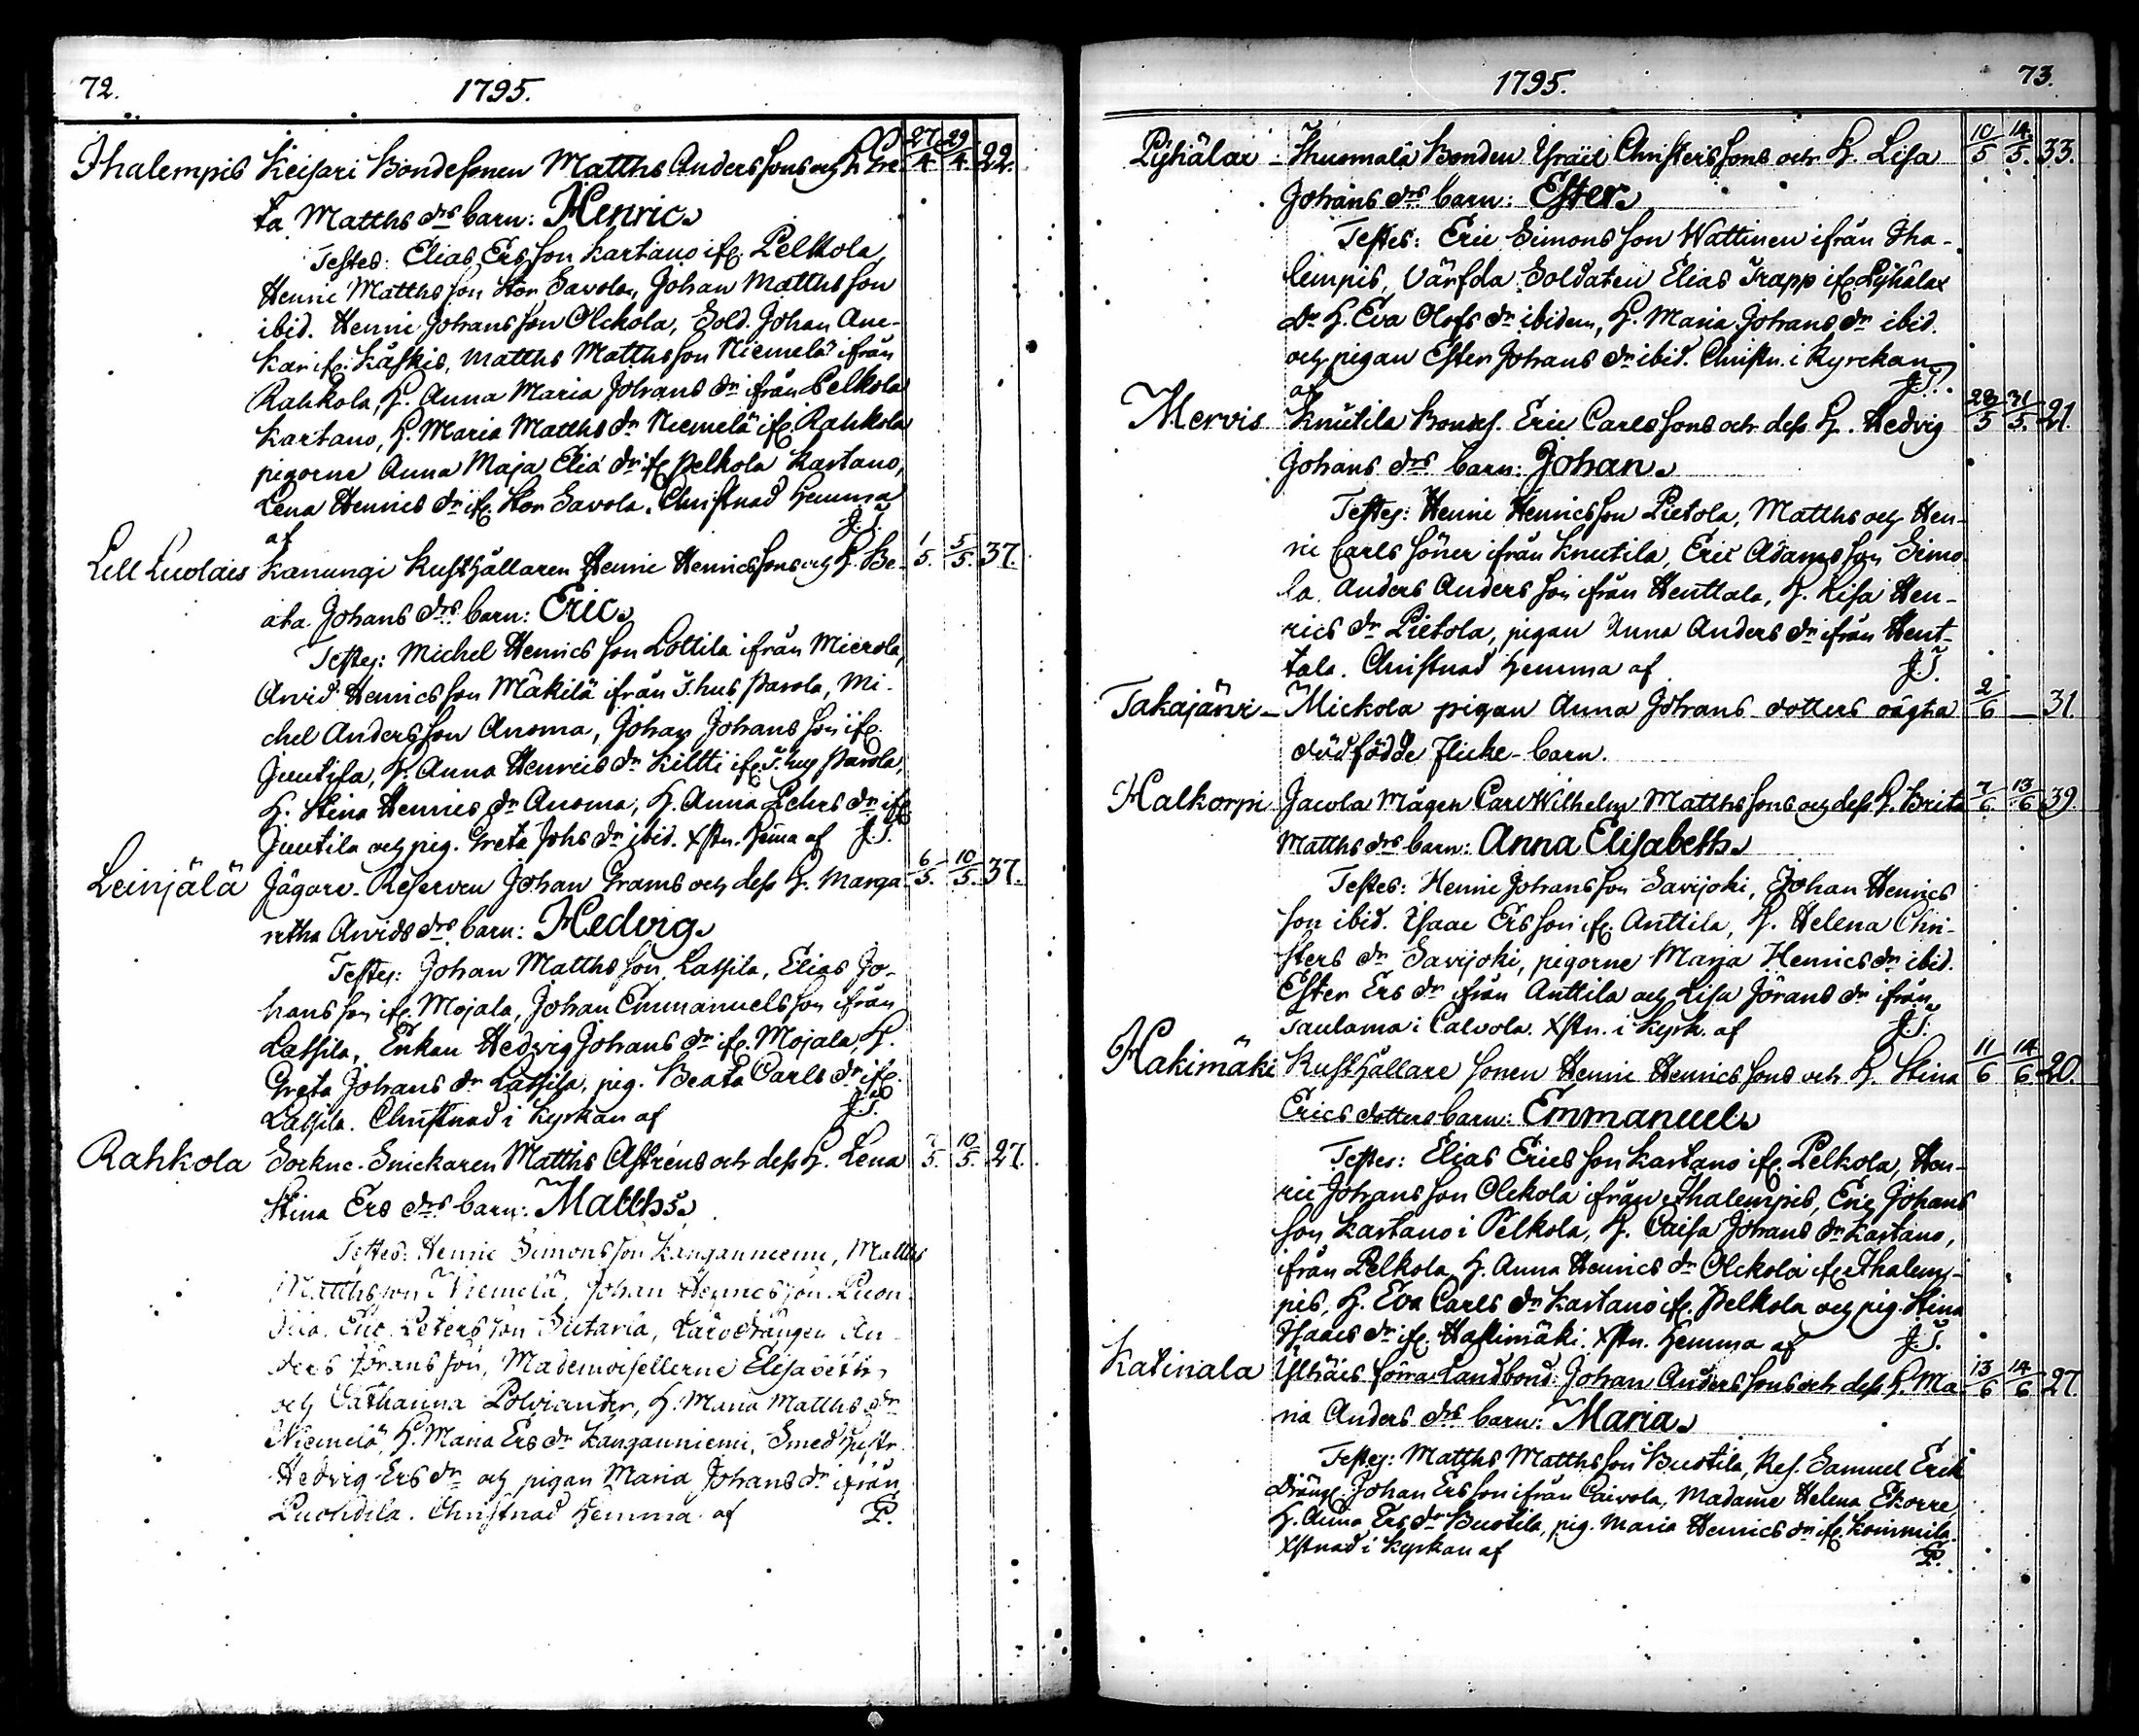 72.
1795.
Ihalempis Keisari Bondesonen Matths Anderssons och H. Gre- 27/4. 29/4. 22.
ta Matths drs barn: Henric
Testes: Elias Ersson Kartano ifr. Pelkola,
Henric Matthsson Stor Savola, Johan Matthsson
ibid. Henric Johansson Olckola, Sold. Johan
Matths Matthsson Niemelä ifrån
Rahkola, H. Anna Maria Johans dr ifrån Pelkola
Kartano, H. Maria Matths dr Niemelä ifr. Rahkola
pigorne Anna Maja Eliä dr ifr. Pelkola Kartano,
Lena Henrics dr ifr. Stor Savola. Christnad hemma
af J.T.
Lill Luolais Kanungi Rusthållaren Henric Henricssons och H. Be- 1/5. 5/5. 37.
ata Johans drs barn: Eric
Testes: Michel Henricsson Lottila ifrån Mierola,
Arvid Henricsson Mäkilä ifrån T.hus Parola, Mi-
chel Andersson Anoma, Johan Johansson ifr.
Juutila, H. Anna Henrics dr Kiltti ifr. T.hus Parola,
H. Stina Henrics dr Anoma, H. Anna Pehrs dr ifr.
Juutila och pig. Greta Johs dr ibid. Xstn. hema af J.T.
Leinjälä Jägare-Reserven Johan Grams och dess H. Marga- 6/5. 10/5. 37.
retha Arvids drs barn: Hedvig
Testes: Johan Matthsson Lassila, Elias Jo-
hansson ifr. Mojala, Johan Emmanuelsson ifrån
Lassila, Enkan Hedvig Johans dr ifr. Mojala, H.
Greta Johans dr Lassila, pig. Beata Carls dr ifr.
Lassila. Christnad i Kyrkan af J.T.
Rahkola Sockne-Snickaren Matths Astréns och dess H. Lena 7/5. 10/5. 27.
Stina Ers drs barn: Matths
Testes: Henric Simonsson Kanganniemi, Matths
Matthsson Niemelä, Johan Henricsson Luon-
dila, Eric Petersson Sutaria, An-
ders Göransson, Mademoisellerne Elisabeth
och Catharina Polviander, H. Maria Matths dr
Niemelä, H. Maria Ers dr Kanganniemi, Smed hustr.
Hedvig Ers dr och pigan Maria Johans dr ifrån
Luondila. Christnad hemma af P.
1795.
73.
Pyhälax Thuomala Bonden Israël Christerssons och H. Lisa 10/5 14/5. 33.
Johans drs barn: Ester
Testes: Eric Simonsson Wattinen ifrån Iha-
lempis, Värfda Soldaten Elias Trapp ifr. Pyhälax
Dr H. Eva Olofs dr ibidem, H. Maria Johans dr ibid.
och pigan Ester Johans dr ibid. Christn. i Kyrckan
af J.T.
Mervis Knutila Bondes. Eric Carlssons och dess H. Hedvig 28/5 31/5. 21.
Johans drs barn: Johan
Testes: Henric Henricsson Pietola, Matths och Hen-
ric Carls söner ifrån Knutila, Eric Adamsson Simo-
la. Anders Andersson ifrån Henttala, H. Lisa Hen-
rics dr Pietola, pigan Anna Anders dr ifrån Hent-
tala. Christnad hemma af J.T.
Takajärvi Mickola pigan Anna Johans dotters oägta 2/6 — 31.
dödfödde flicke-barn.
Halkorpi Jacola Mågen Carl Wilhelm Matthssons och dess H. Brita 7/6. 13/6 39.
Matths drs barn: Anna Elisabeth
Testes: Henric Johansson Savijoki, Johan Henrics
son ibid. Isaac Ersson ifr. Anttila, H. Helena Chri-
sters dr Savijoki, pigorne Maria Henrics dr ibid.
Ester Ers dr ifrån Anttila och Lisa Jörans dr ifrån
Taulama i Calvola. Xstn. i Kyrk. af J.T.
Hakimäki Rusthållare sonen Henric Henricssons och H. Stina 11/6 14/6 20.
Erics dotters barn: Emmanuel
Testes: Elias Ericsson Kartano ifr. Pelkola, Hen-
ric Johansson Olckola ifrån Ihalempis, Eric Johans
son Kartano i Pelkola, H. Caisa Johans dr Kartano,
ifrån Pelkola, H. Anna Henrics dr Olckola ifr. Ihalem-
pis, H. Eva Carls dr Kartano ifr. Pelkola och pig. Stina
Isaacs dr ifr. Hakimäki. Xstn. hemma af J.T.
Katinala Ylhäis Landbond. Johan Anderssons och dess H. Ma- 13/6 14/6 27.
ria Anders drs barn: Maria
Testes: Matths Matthsson Buotila, Res. Samuel Erck
Dräng. Johan Ersson ifrån Caivola, Madame Helena Ekorre,
H. Anna Ers dr Buotila, pig. Maria Henrics dr ifr.
Xstnad i Kyrkan af P.